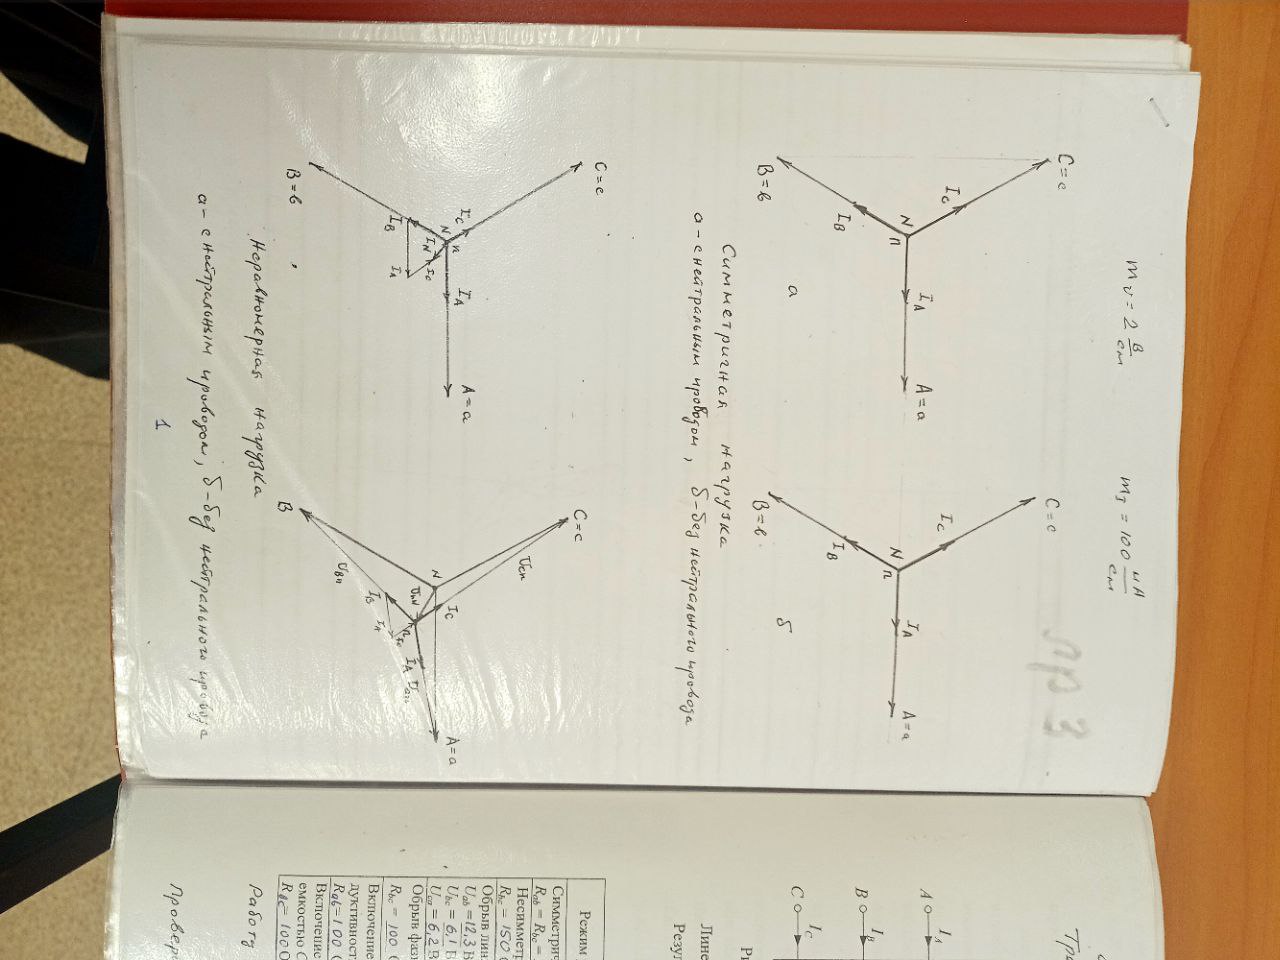 m_U = 2 В/см
m_I = 100 мА/см
лр 3
C = c
I_C
N
n
I_A
A = a
I_B
B = в
а
C = c
I_C
N
n
I_A
A = a
I_B
B = в
б
Симметричная нагрузка
а - с нейтральным проводом, б - без нейтрального провода
C = c
I_C
N
n
I_A
A = a
I_N
I_C
I_B
I_A
B = в
C = c
U_cn
I_C
N
A = a
U_nN
n
I_C
I_A
U_an
I_B
I_A
U_Bn
B
Неравномерная нагрузка
а - с нейтральным проводом, б - без нейтрального провода
1
A
I_A
B
I_B
C
I_C
Лине
Резул
Режим
Симметрич
R_ab = R_bc =
Несимметр
R_bc = 150
Обрыв лин
U_ab = 12,3 В
U_bc = 6,1 В
U_ca = 6,2 В
Обрыв фаз
R_bc = 100
Включение
дуктивност
R_ab = 100
Включение
емкостью С
R_bc = 100 О
Работу
Провер